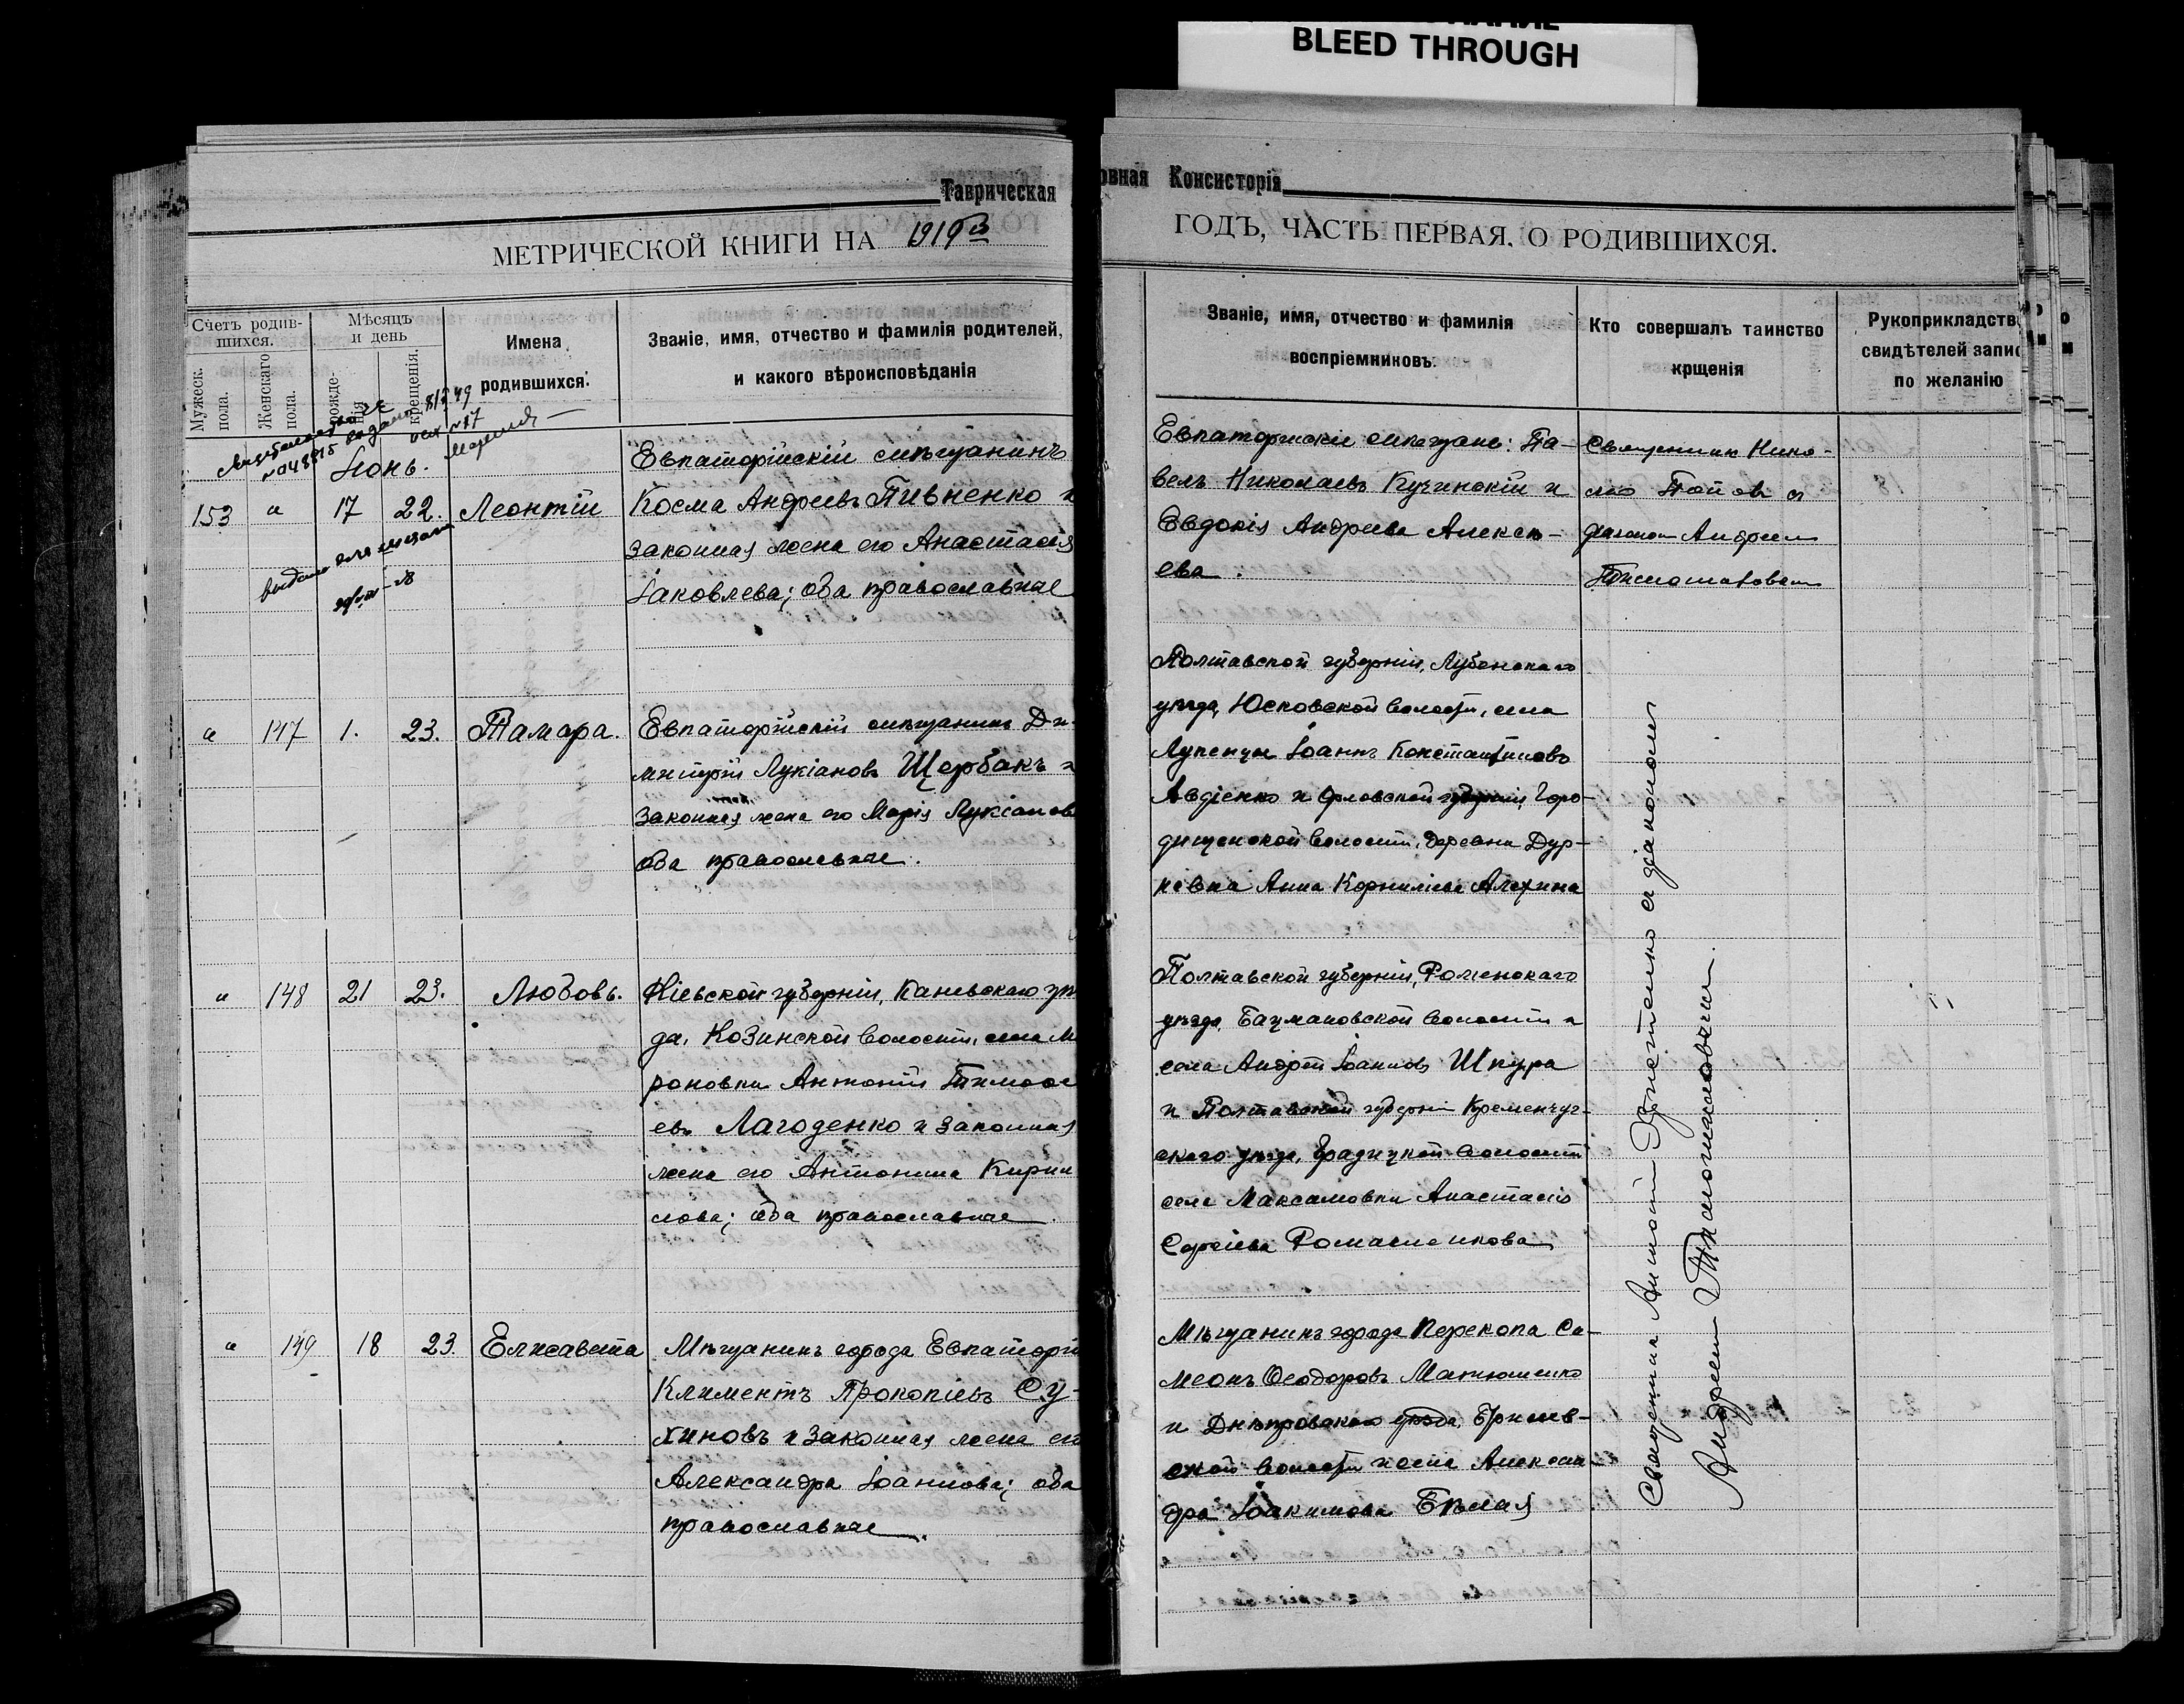 BLEED THROUGH
Таврическая
овная Консисторія
МЕТРИЧЕСКОЙ КНИГИ НА 1919й
ГОДЪ, ЧАСТЬ ПЕРВАЯ, О РОДИВШИХСЯ.
Счетъ родив-
шихся.
Мужеск.
пола.
Женскаго
пола.
Мѣсяцъ
и день
рожде-
нія
крещенія.
Имена
родившихся.
Званіе, имя, отчество и фамилія родителей,
и какого вѣроисповѣданія
Званіе, имя, отчество и фамилія
воспріемниковъ.
Кто совершалъ таинство
крщенія
Рукоприкладств
свидѣтелей запис
по желанію
Іюнь.
153 " 17 22. Леонтій
Евпаторійскій мѣщанинъ
Косма Андреевъ Пивненко и
законная жена его Анастасія
Іаковлева; оба православные
Евпаторійскіе мѣщане: Па-
велъ Николаевъ Кучинскій и
Евдокія Андреева Алексѣ-
ева.
Священникъ Нико-
лай Поповъ съ
діакономъ Андреемъ
" 147 1. 23. Тамара.
Евпаторійскій мѣщанинъ Ди-
митрій Лукіановъ Щербакъ и
законная жена его Марія Лукіанов
оба православные.
Полтавской губерніи, Лубенскаго
уѣзда, Юсковской волости, села
Лупенцы Іоаннъ Константиновъ
Авдіенко и Орловской губерніи, Горо-
дищенской волости, деревни Дур-
невка Анна Корниліева Алехина
" 148 21 23. Любовь.
Кіевской губерніи, Каневскаго уѣ
да, Козинской волости, села М
роновки Антоній Тимоѳе
евъ Лагоденко и законная
жена его Антонина Кирил
лова; оба православные.
Полтавской губерніи, Роменскаго
уѣзда, Бацмановской волости и
села Андрей Іоанновъ Шкура
и Полтавской губерніи Кременчуг-
скаго уѣзда, Градицкой волости
села Максимовки Анастасія
Сергіева Романенкова
" 149 18 23. Елисавета
Мѣщанинъ города Евпаторіи
Климентъ Прокопіевъ Су-
хиновъ и законная жена его
Александра Іоаннова; оба
православные.
Мѣщанинъ города Перекопа Си-
меонъ Ѳеодоровъ Матюшенко
и Днѣпровскаго уѣзда,
ской волости и села Алексан
дра Іоакимова Бѣлая
Священникъ Антоній съ діакономъ
Андреемъ Тихомановичемъ